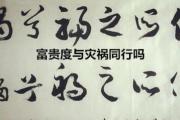 兮福之所
富贵度与灾祸同行吗
兮之所